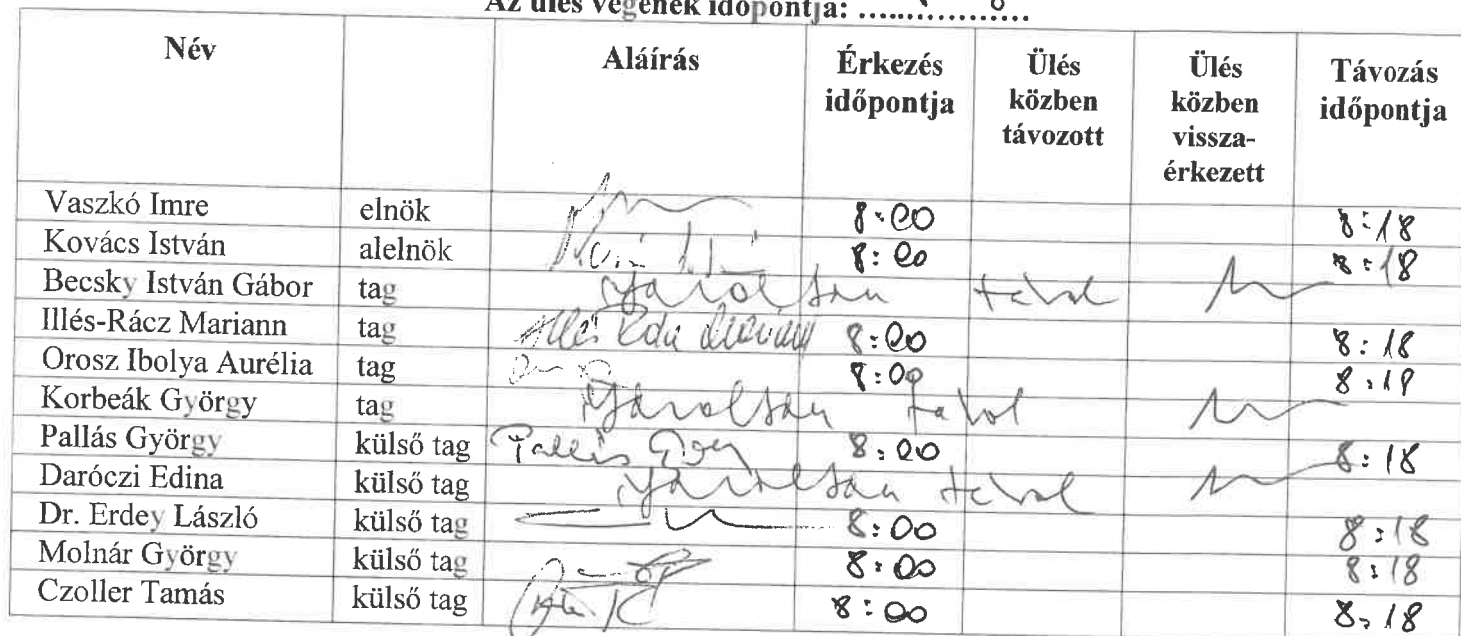 Az ülés végének időpontja: ....................
Név Aláírás Érkezés időpontja Ülés közben távozott Ülés közben vissza-érkezett Távozás időpontja
Vaszkó Imre elnök 8:00 8:18
Kovács István alelnök 8:00 8:18
Becsky István Gábor tag igazoltan távol
Illés-Rácz Mariann tag 8:00 8:18
Orosz Ibolya Aurélia tag 8:00 8:18
Korbeák György tag igazoltan távol
Pallás György külső tag 8:00 8:18
Daróczi Edina külső tag igazoltan távol
Dr. Erdey László külső tag 8:00 8:18
Molnár György külső tag 8:00 8:18
Czoller Tamás külső tag 8:00 8:18